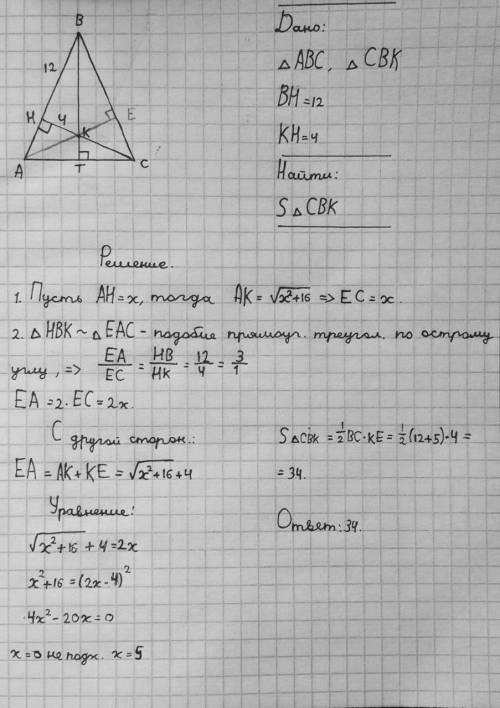 B
12
H
4
E
K
A
T
C
Дано:
△ABC, △CBK
BH=12
KH=4
Найти:
S△CBK
Решение.
1. Пусть AH=x, тогда AK=√x²+16 => EC=x.
2. △HBK~△EAC - подобие прямоуг. треугол. по острому
углу, => EA/EC = HB/HK = 12/4 = 3/1
EA=2·EC=2x.
С другой сторон.:
EA=AK+KE=√x²+16+4
Уравнение:
√x²+16+4=2x
x²+16=(2x-4)²
4x²-20x=0
x=0 не подх. x=5
S△CBK=1/2BC·KE=1/2(12+5)·4=
=34.
Ответ: 34.